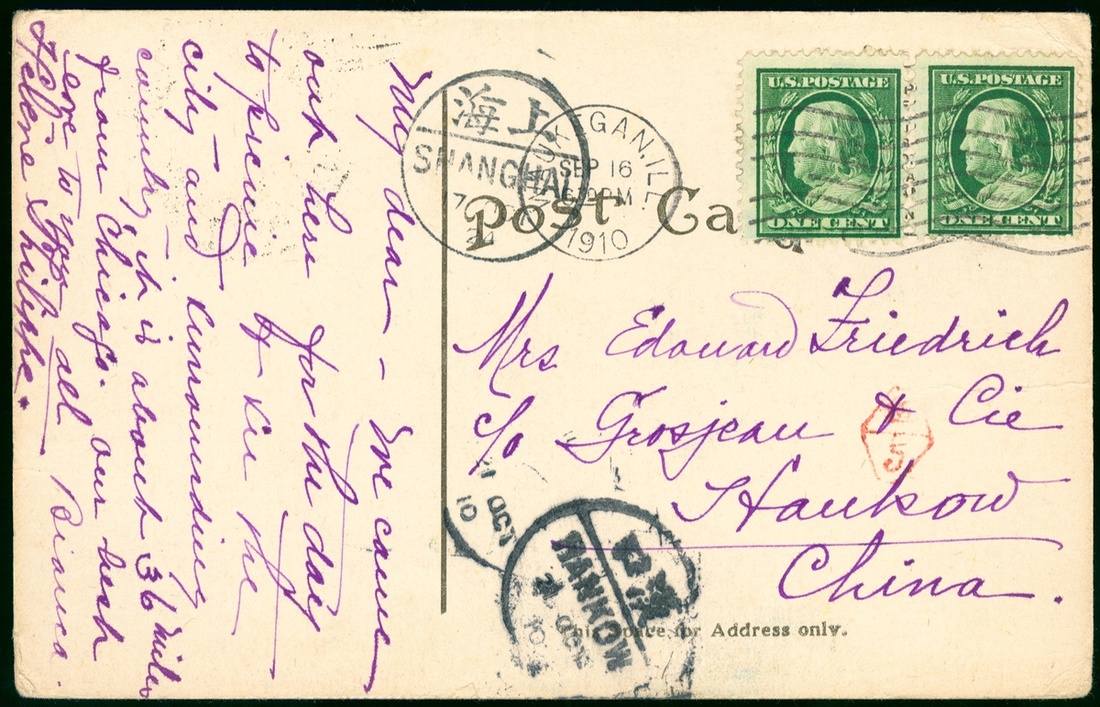 My dear – We came
out here for the day
to picnic & see the
city – and surrounding
country, it is about 36 miles
from Chicago. our best
love to you all Bianca
Helene
上海
SHANGHAI
WAUKEGAN, ILL.
SEP 16
PM
1910
U.S. POSTAGE
ONE CENT
U.S. POSTAGE
ONE CENT
Post Card
Mrs Edouard Friedrich
c/o Grosjean & Cie
Hankow
China.
OCT
10
漢口
HANKOW
OCT
10
This Space for Address only.